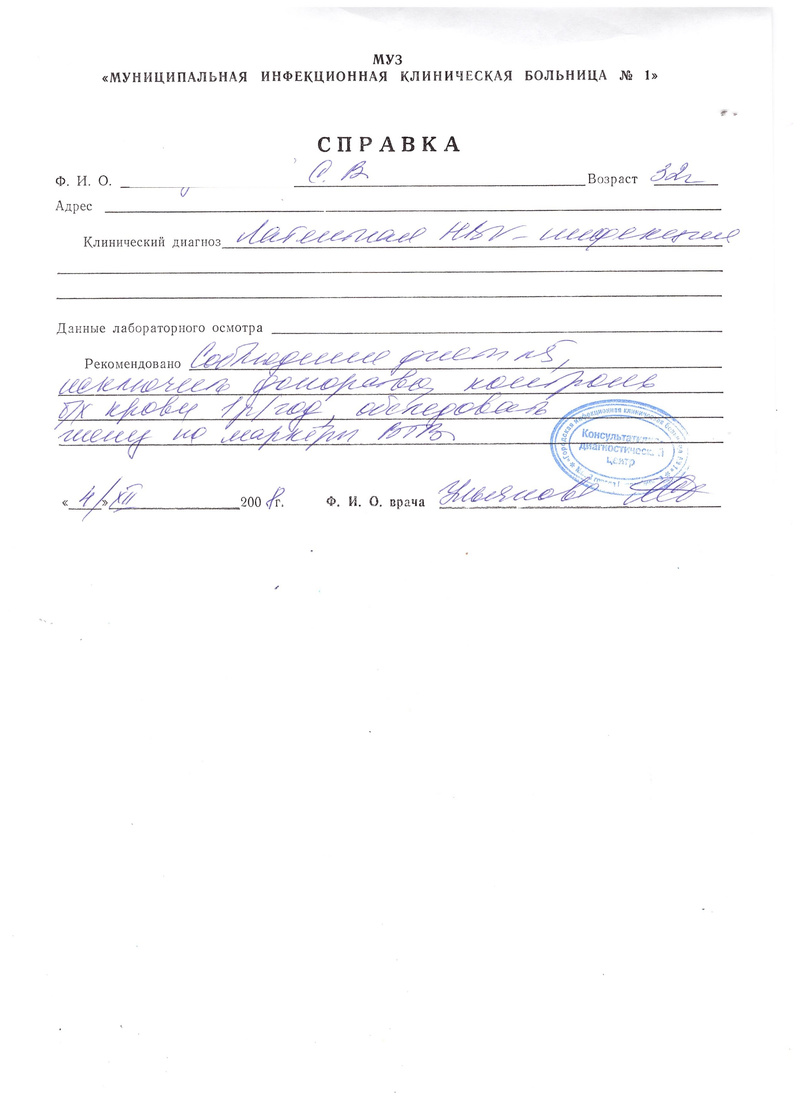 МУЗ
«МУНИЦИПАЛЬНАЯ ИНФЕКЦИОННАЯ КЛИНИЧЕСКАЯ БОЛЬНИЦА № 1»
СПРАВКА
Ф. И. О. С. В Возраст 32г
Адрес
Клинический диагноз Латентная HBV-инфекция
Данные лабораторного осмотра
Рекомендовано Соблюдение диеты №5,
исключить донорство, контроль
б/х крови 1р/год, обследовать
жену на маркёры ВГВ.
Консультативно
диагностический
центр
«4» XII 2008г. Ф. И. О. врача